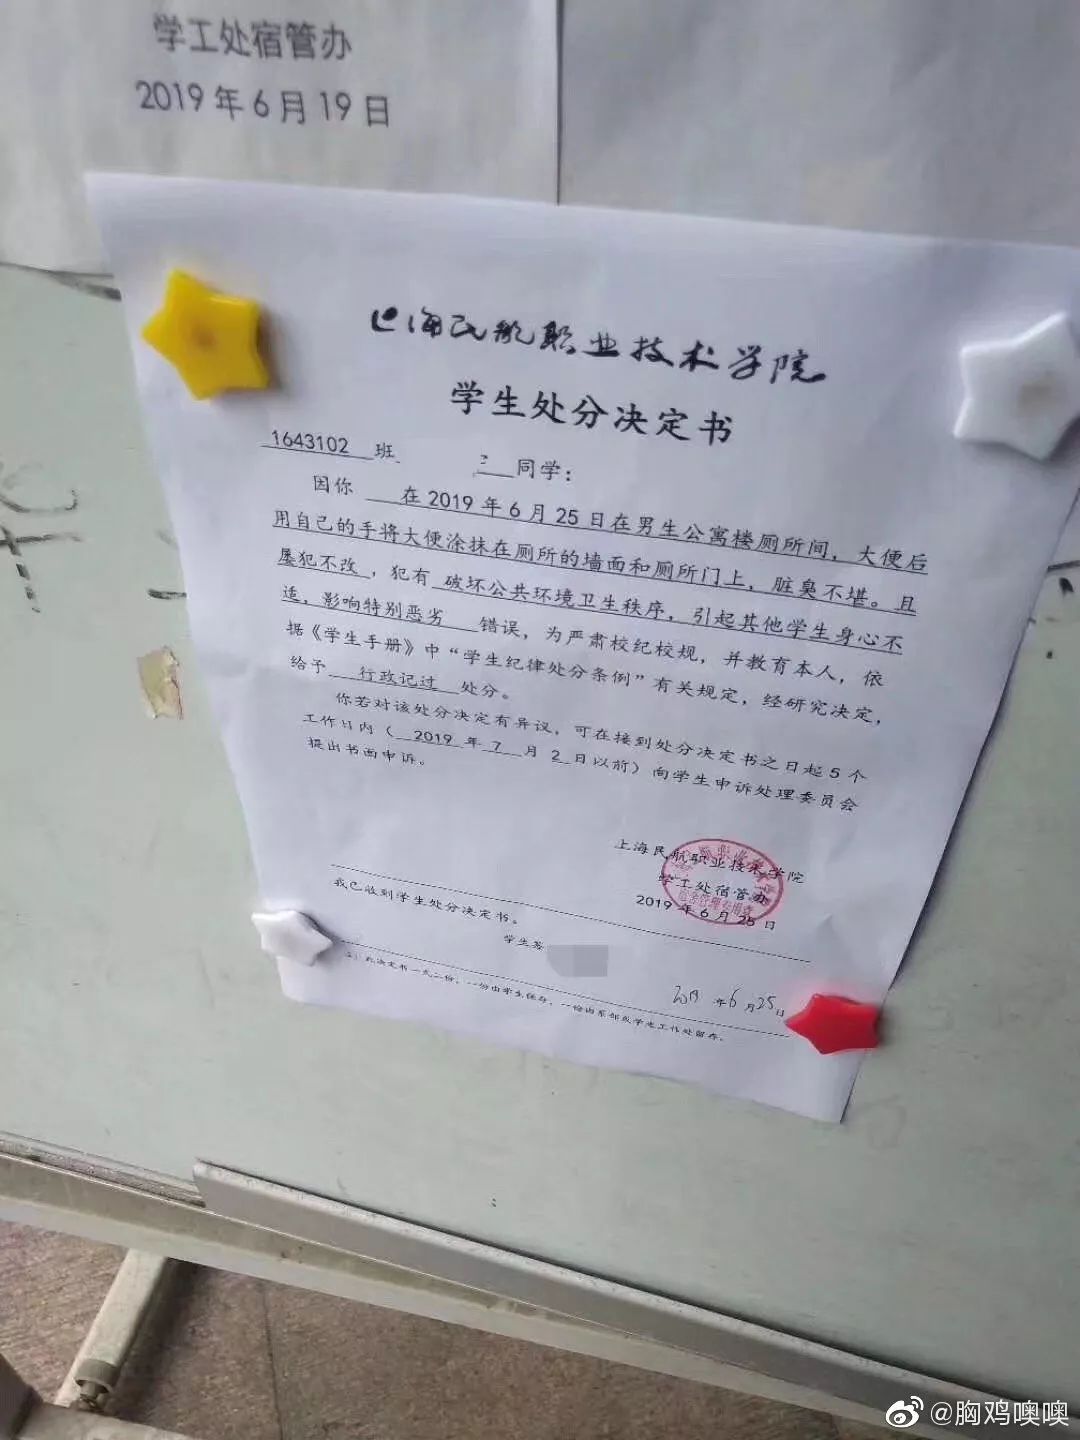 学工处宿管办
2019年6月19日
上海民航职业技术学院
学生处分决定书
1643102 班 同学：
因你 在2019年6月25日在男生公寓楼厕所间，大便后
用自己的手将大便涂抹在厕所的墙面和厕所门上，脏臭不堪。且
屡犯不改，犯有 破坏公共环境卫生秩序，引起其他学生身心不
适，影响特别恶劣 错误，为严肃校纪校规，并教育本人，依
据《学生手册》中“学生纪律处分条例”有关规定，经研究决定，
给予 行政记过 处分。
你若对该处分决定有异议，可在接到处分决定书之日起5个
工作日内（2019年7月2日以前）向学生申诉处理委员会
提出书面申诉。
上海民航职业技术学院
学工处宿管办
2019年6月25日
我已收到学生处分决定书。
学生签
2019年6月25日
注：此决定书一式二份，一份由学生保存，一份由系部或学生工作处留存。
@胸鸡噢噢